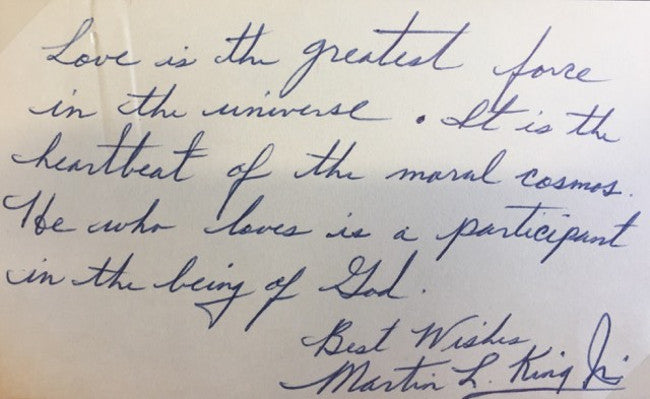 Love is the greatest force
in the universe. It is the
heartbeat of the moral cosmos.
He who loves is a participant
in the being of God.
Best Wishes
Martin L. King Jr